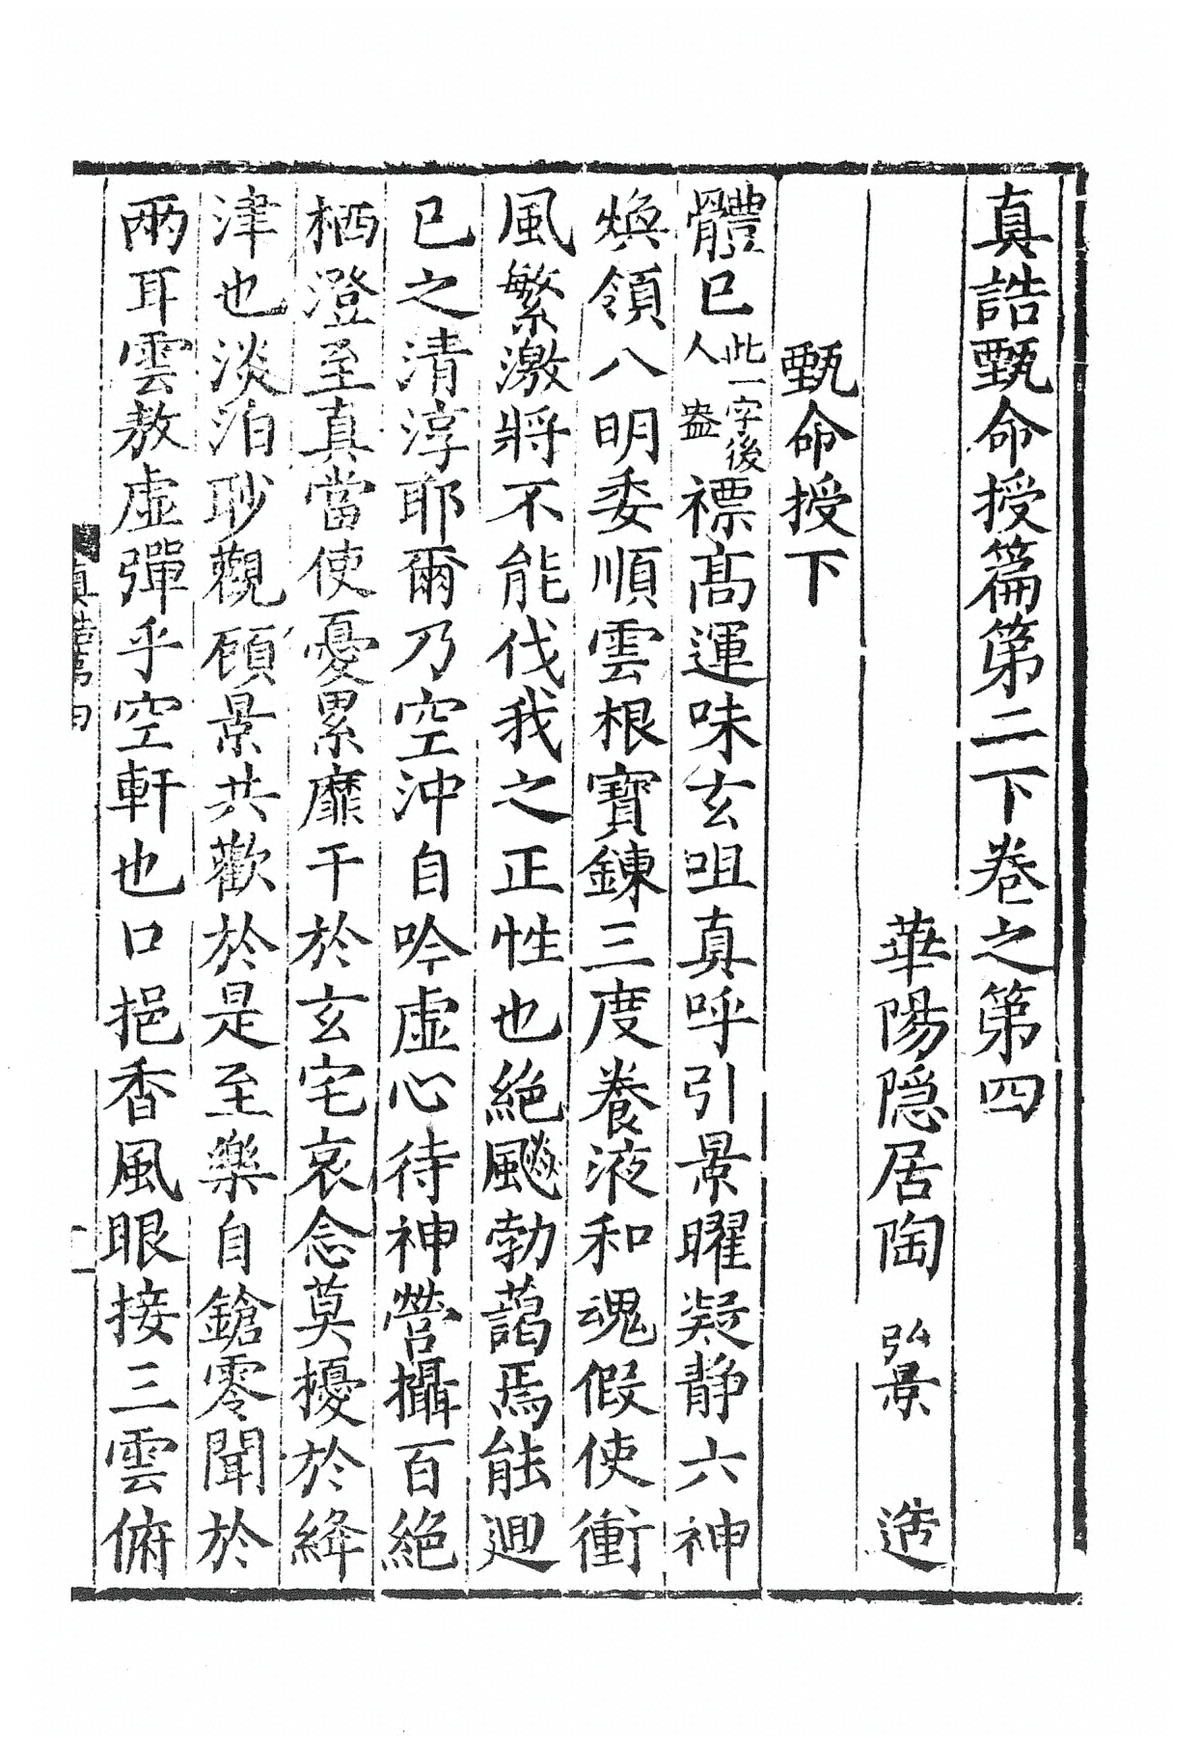 真誥甄命授篇第二下卷之第四
華陽隱居陶 弘景 造
甄命授下
體已此一字後人盎褾高運味玄咀真呼引景曜凝静六神
煥領八明委順雲根寶鍊三度養液和魂假使衝
風繁激將不能伐我之正性也絶飇勃藹焉能迴
已之清淳耶爾乃空沖自吟虛心待神營攝百絶
栖澄至真當使憂累靡干於玄宅哀念莫擾於絳
津也淡泊眇觀顧景共歡於是至樂自鎗零聞於
兩耳雲敖虛彈乎空軒也口挹香風眼接三雲俯